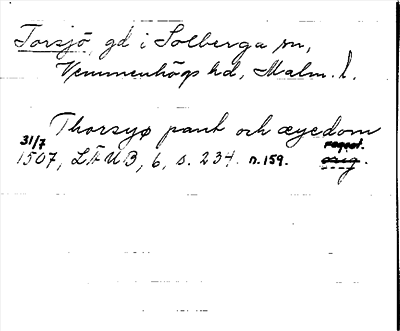 Torsjö, gd i Solberga sn,
Vemmenhögs hd, Malm. l.
Thorsyø pant och æyedom
31/7 regest.
1507, LÄUB, 6, s. 234. n. 159. orig.